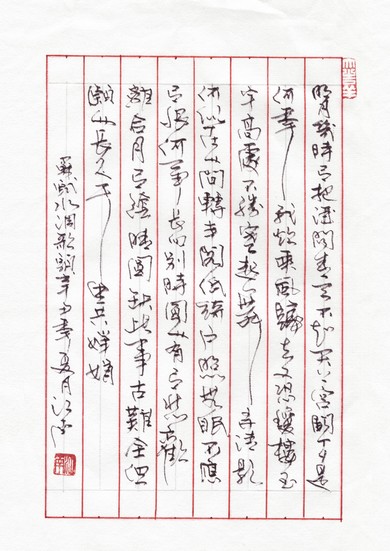 明月幾時有把酒問青天不知天上宮闕今夕是
何年我欲乘風歸去又恐瓊樓玉
宇高處不勝寒起舞弄清影
何似在人間轉朱閣低綺戶照無眠不應
有恨何事長向別時圓人有悲歡
離合月有陰晴圓缺此事古難全但
願人長久千里共嬋娟
蘇軾水調歌頭辛丑夏月